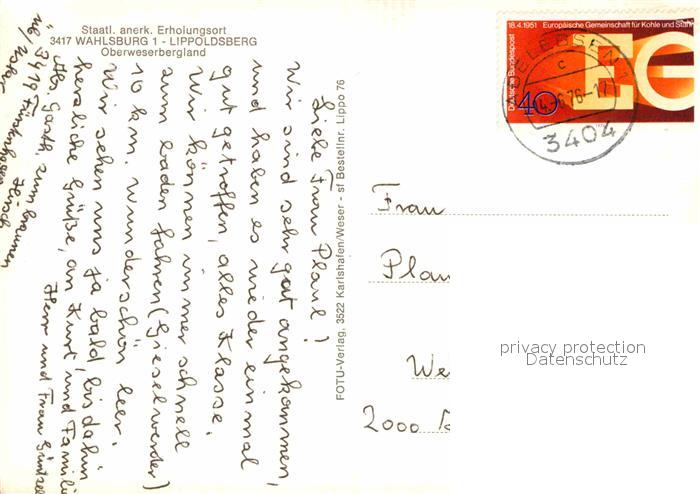 Staatl. anerk. Erholungsort
3417 WAHLSBURG 1 - LIPPOLDSBERG
Oberweserbergland
Liebe Frau Plaue!
Wir sind sehr gut angekommen,
und haben es wieder einmal
gut getroffen, alles Klasse.
Wir können immer schnell
zum baden fahren (Gieselwerder)
10 km. wunderschön leer.
Wir sehen uns ja bald, bis dahin
herzliche Grüße, an Kurt, und Famili
Herr und Frau
Gasth. zum braunen
Hirsch
3419
FOTU-Verlag, 3522 Karlshafen/Weser - sf Bestellnr. Lippo 76
18.4.1951 Europäische Gemeinschaft für Kohle und Stahl
Deutsche Bundespost
40
EG
ADELEBSEN 1
c
.6.76-17
3404
Frau
Plau
We
2000
privacy protection
Datenschutz